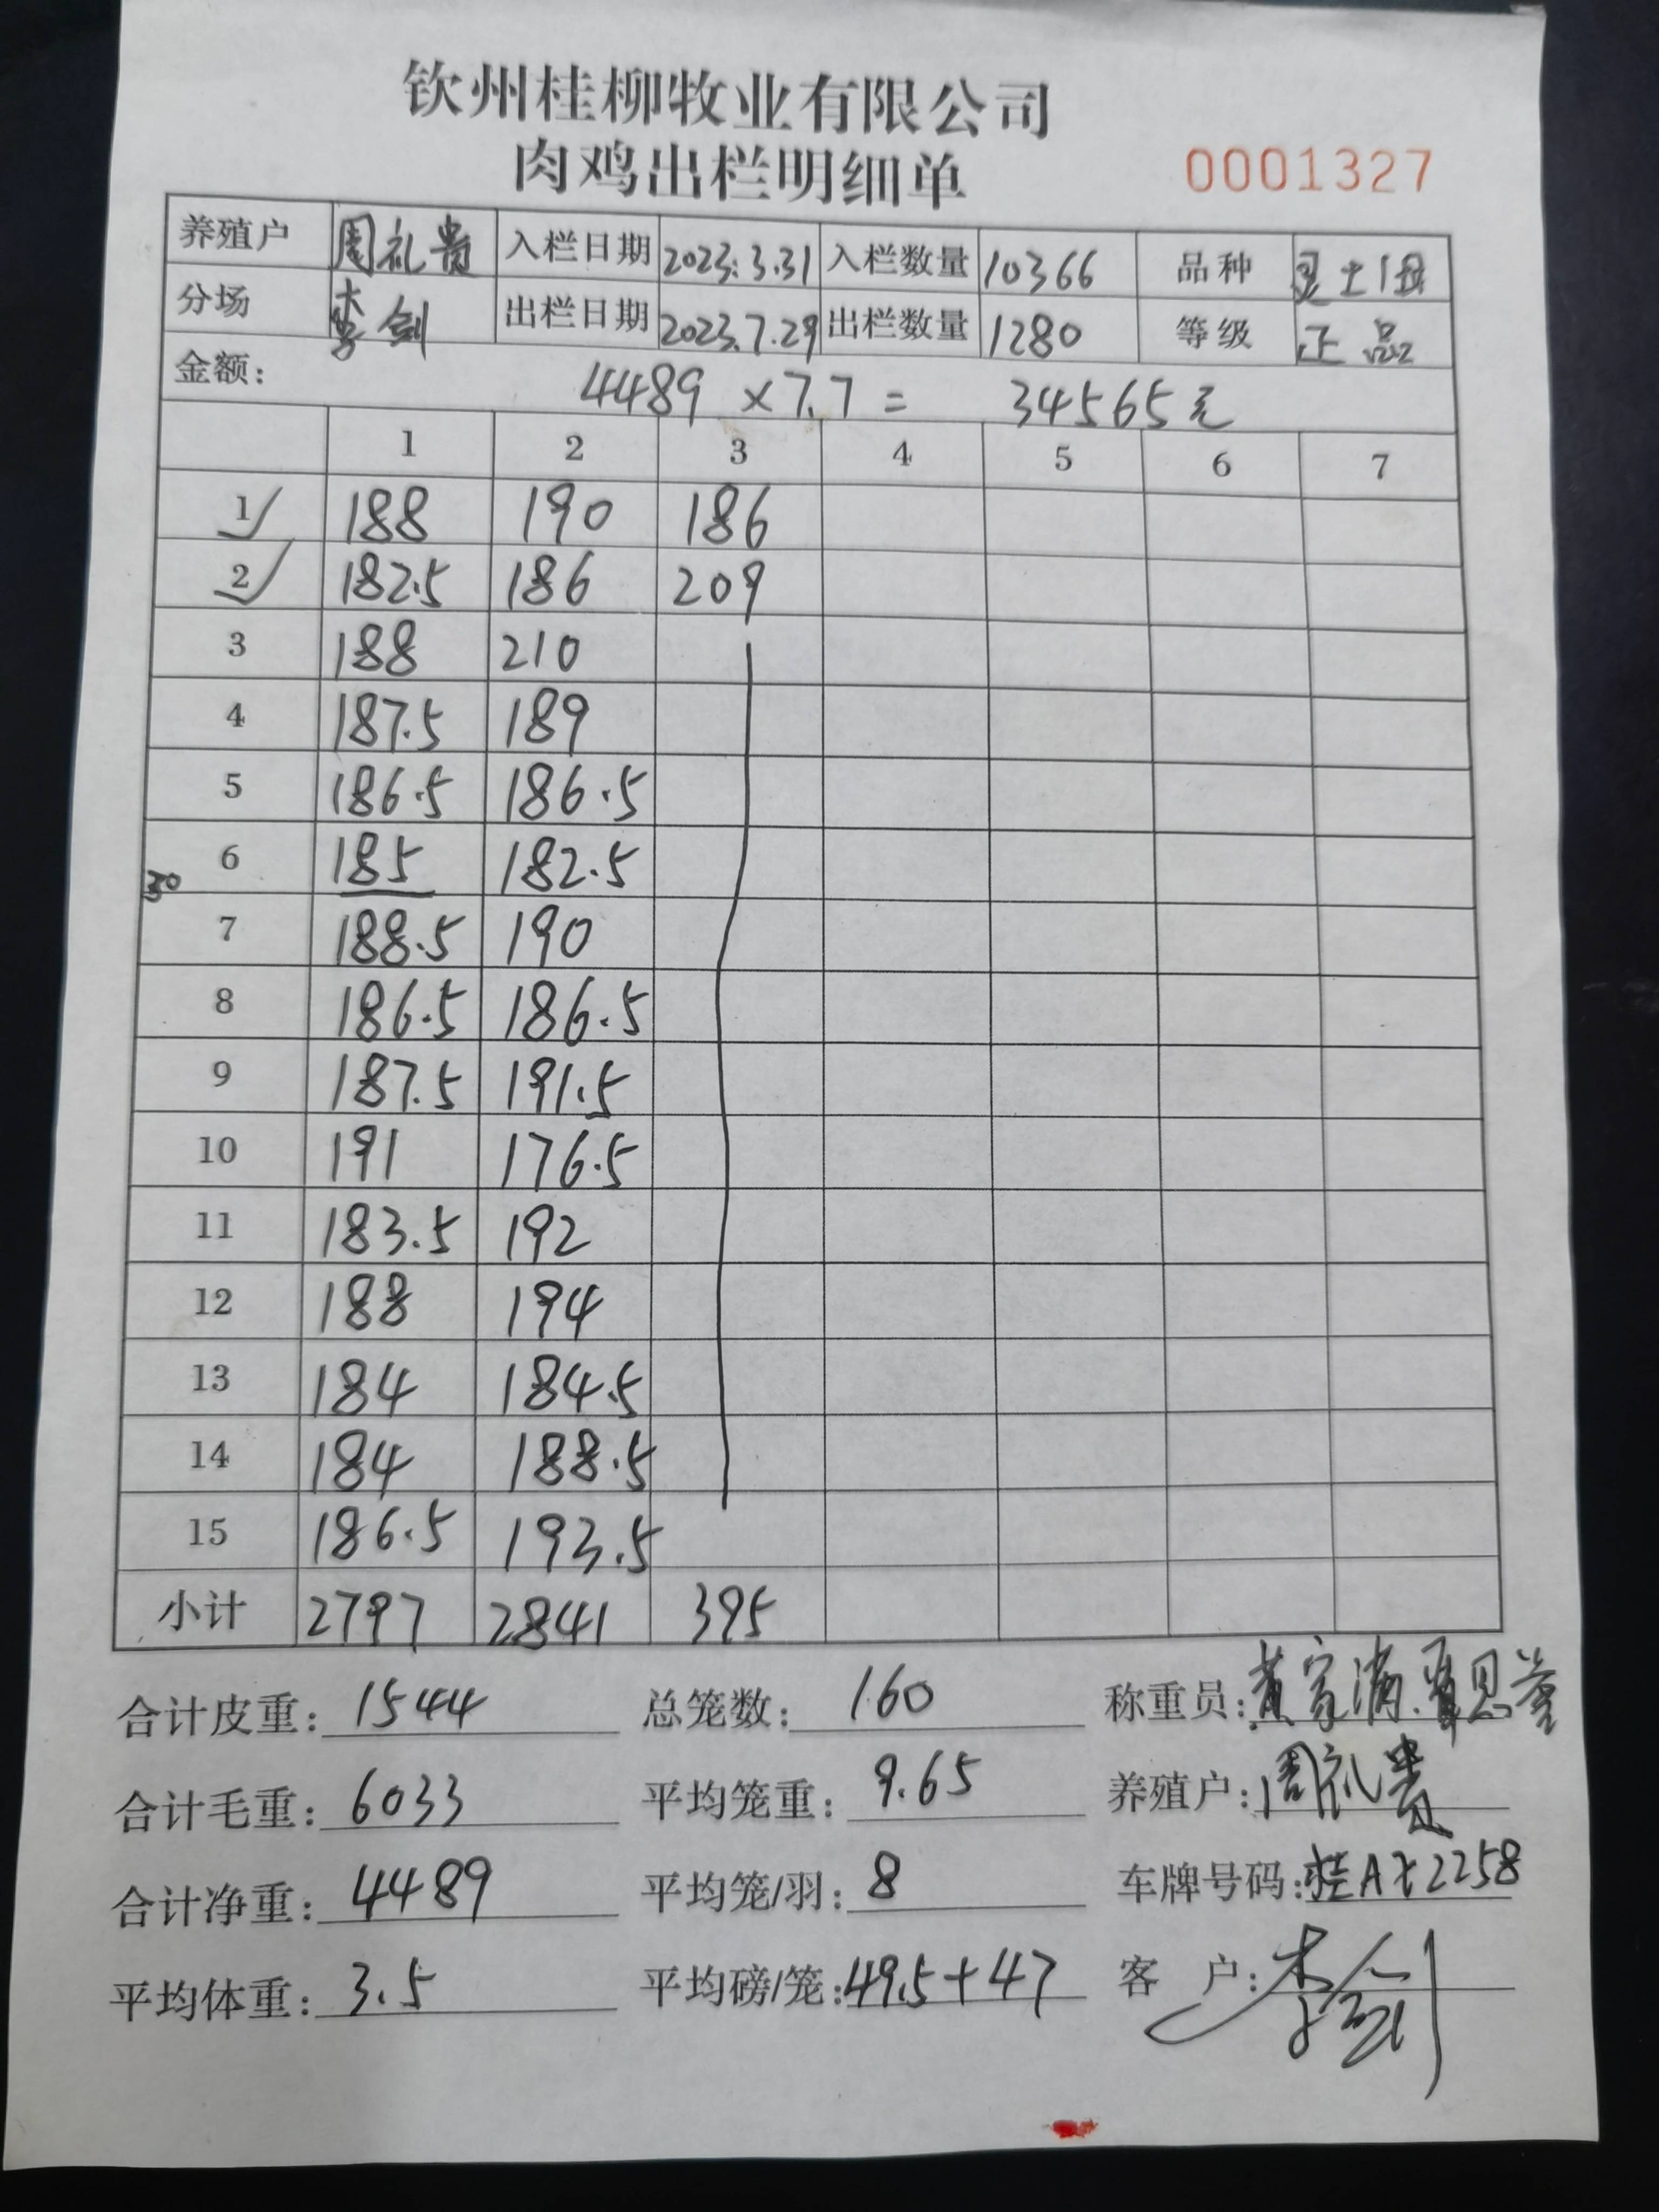 钦州桂柳牧业有限公司
肉鸡出栏明细单 0001327
养殖户 周礼贵 入栏日期 2023.3.31 入栏数量 10366 品种 灵土1母
分场 李剑 出栏日期 2023.7.29 出栏数量 1280 等级 正品
金额: 4489 ×7.7 = 34565元
1 2 3 4 5 6 7
1 188 190 186
2 182.5 186 209
3 188 210
4 187.5 189
5 186.5 186.5
6 185 182.5
30
7 188.5 190
8 186.5 186.5
9 187.5 191.5
10 191 176.5
11 183.5 192
12 188 194
13 184 184.5
14 184 188.5
15 186.5 193.5
小计 2797 2841 395
合计皮重: 1544 总笼数: 160 称重员: 黄家满
合计毛重: 6033 平均笼重: 9.65 养殖户: 周礼贵
合计净重: 4489 平均笼/羽: 8 车牌号码: 桂A 2258
平均体重: 3.5 平均磅/笼: 49.5+47 客户: 李剑